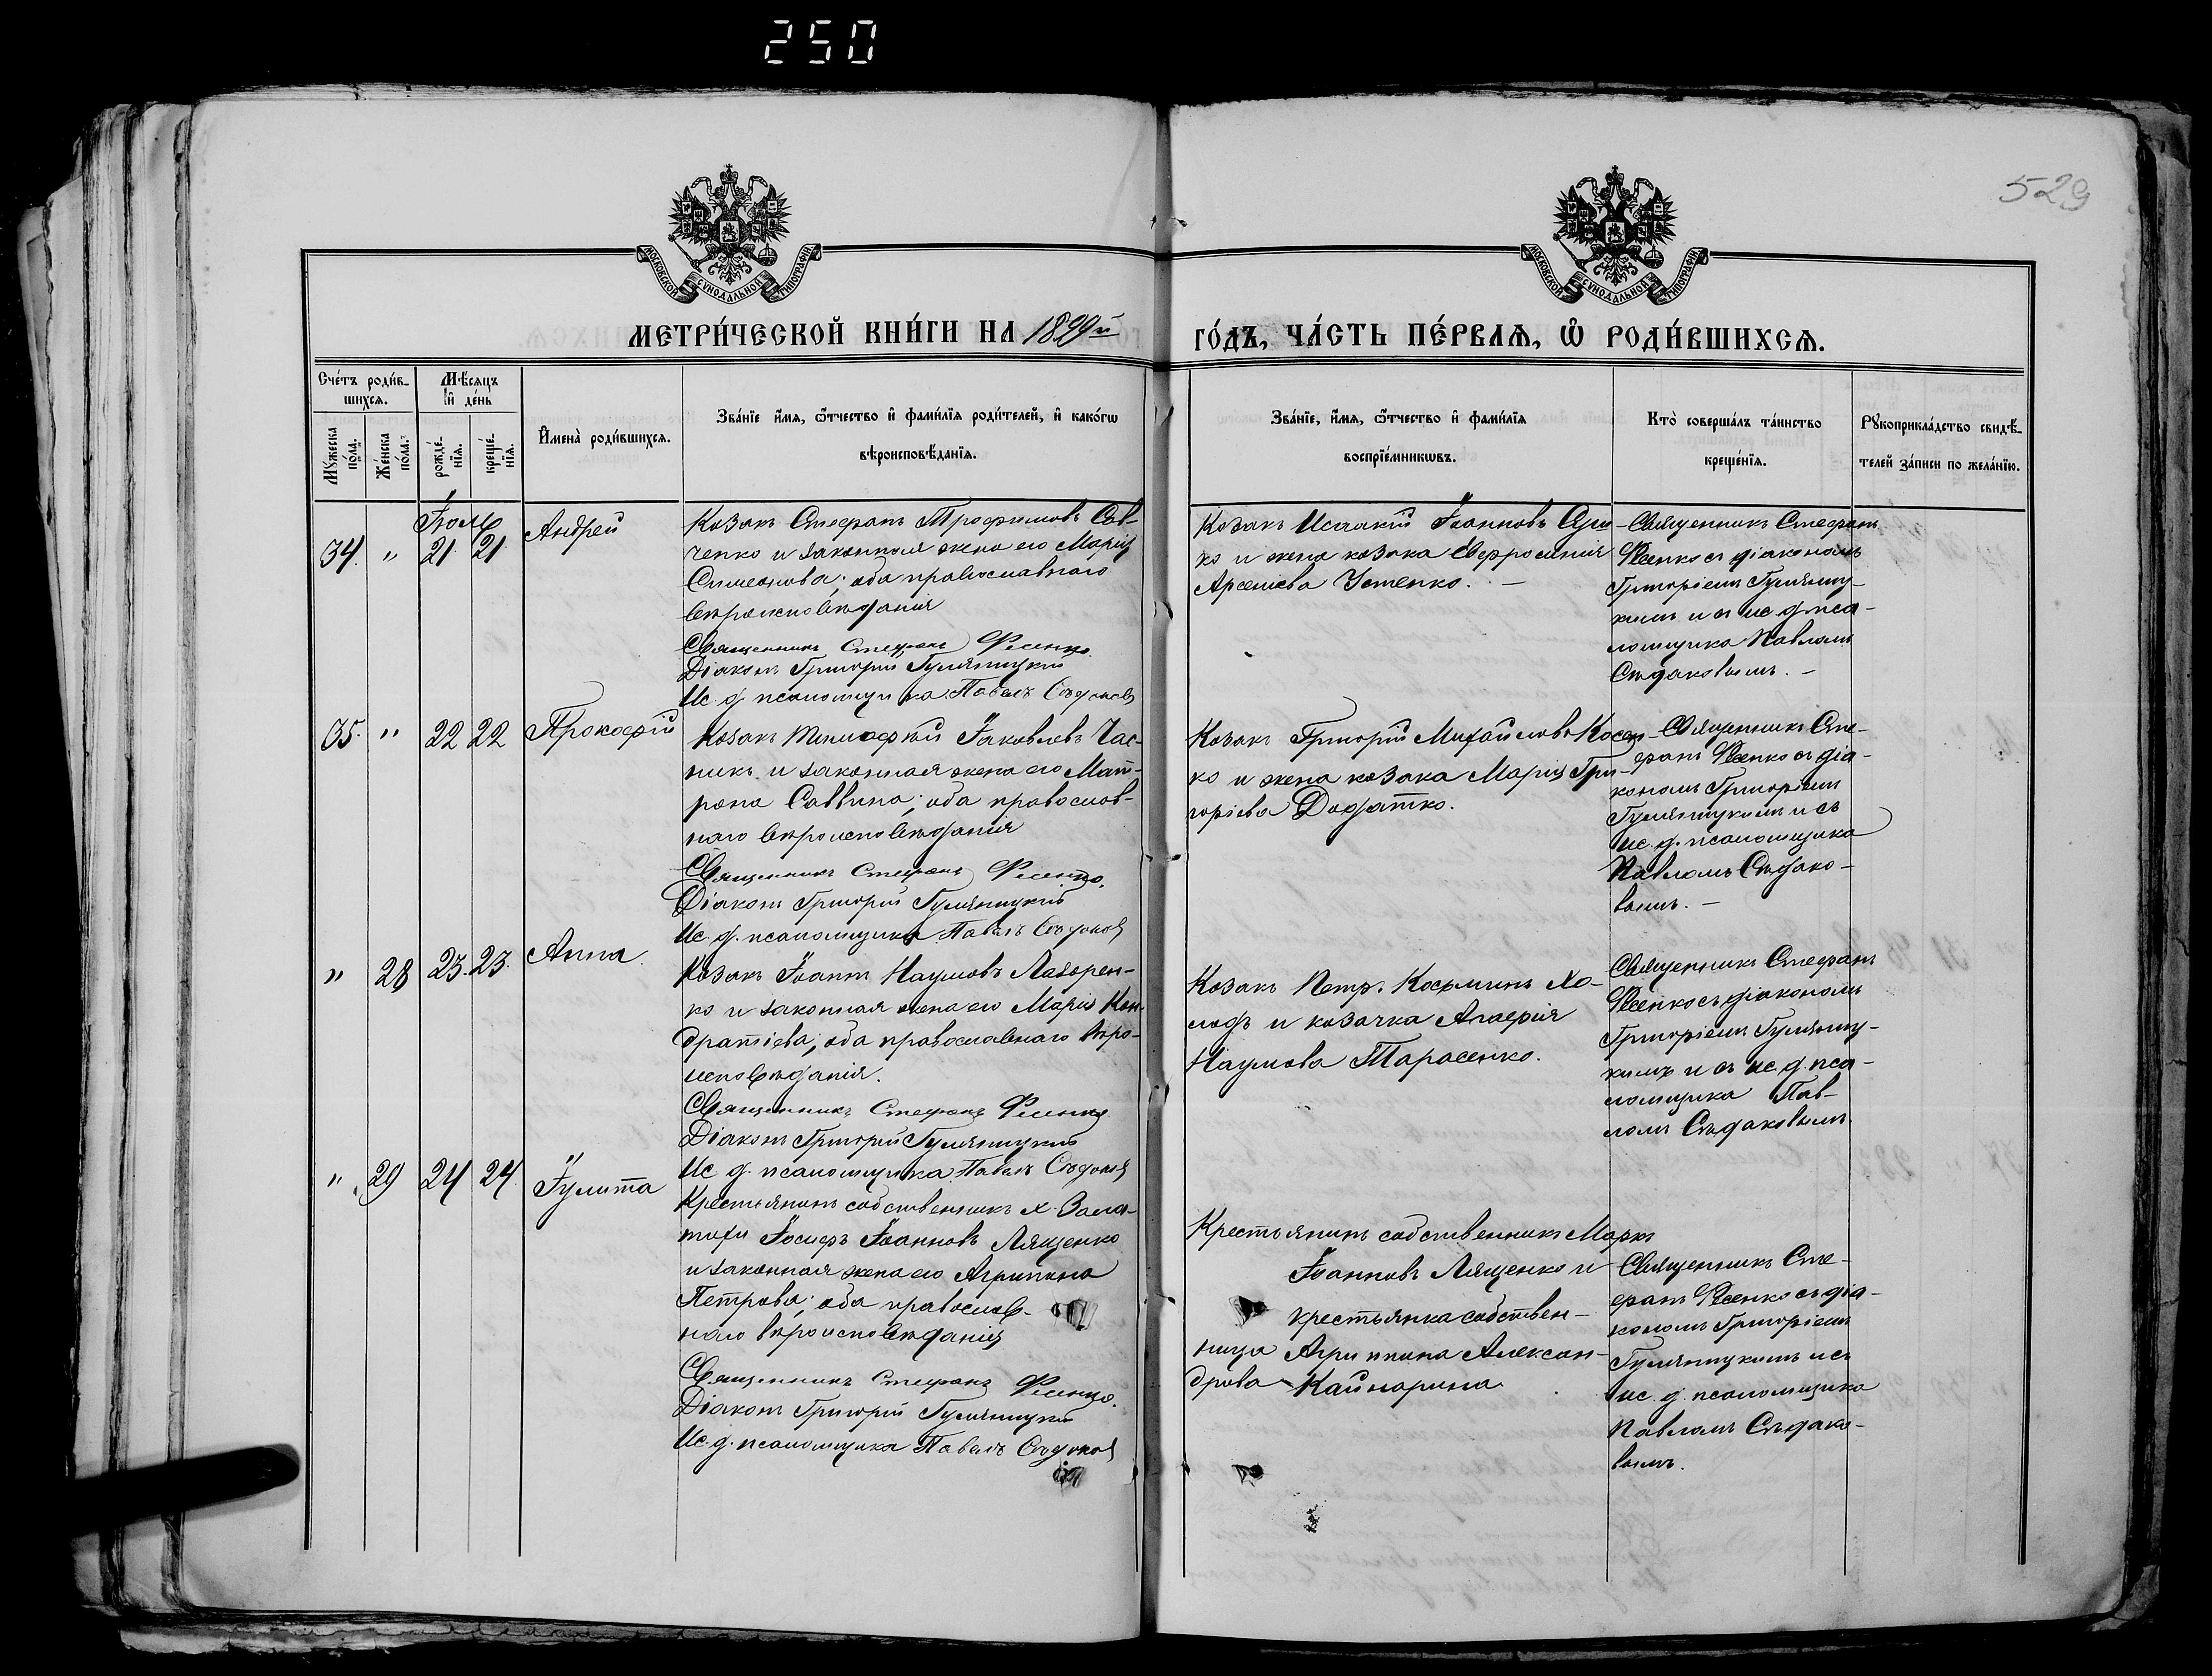 250
529
МОСКОВСКОЙ СѴНОДАЛЬНОЙ ТИПОГРАФІИ
МОСКОВСКОЙ СѴНОДАЛЬНОЙ ТИПОГРАФІИ
МЕТРИ́ЧЕСКОЙ КНИ́ГИ НА 1899й
ГО́ДЪ, ЧА́СТЬ ПЕ́РВАѦ, Ѡ҆ РОДИ́ВШИХСѦ.
Сче́тъ роди́в-
шихсѧ.
Мѣ́сѧцъ
и҆ де́нь
Му́жеска
по́ла.
Же́нска
по́ла.
рожде́-
нїѧ.
креще́-
нїѧ.
И҆мена̀ роди́вшихсѧ.
Зва́нїе и҆́мѧ, ѻ҆́тчество и҆ фами́лїѧ роди́телей, и҆ како́гѡ
вѣроисповѣ́данїѧ.
Зва́нїе, и҆́мѧ, ѻ҆́тчество и҆ фами́лїѧ
воспрїе́мникѡвъ.
Кто̀ соверша́лъ та́инство
креще́нїѧ.
Рꙋкоприкла́дство свидѣ́-
телей за́писи по жела́нїю.
34. " 21. 21. Андрей
Козакъ Стефанъ Трофимовъ Сав-
ченко и законная жена его Марія
Симеонова; оба православнаго
вѣроисповѣданія
Священникъ Стефанъ Фесенко
Діаконъ Григорій Гуляницкій
Ис. д. псаломщика Павелъ Сѣдаковъ
Козакъ Исаакій Іоанновъ
ко и жена козака Евфросинія
Арсеніева Устенко. —
Священникъ Стефанъ
Фесенко съ діакономъ
Григоріемъ Гуляниц-
кимъ и съ ис. д. пса-
ломщика Павломъ
Сѣдаковымъ. —
35. " 22 22 Прокофій
Козакъ Тимофѣй Іаковлевъ Час-
никъ и законная жена его Мат-
рона Саввина; оба православ-
наго вѣроисповѣданія
Священникъ Стефанъ Фесенко.
Діаконъ Григорій Гуляницкій
Ис. д. псаломщика Павелъ Сѣдаковъ
Козакъ Григорій Михайловъ Косен-
ко и жена козака Марія Гри-
горіева Додатко.
Священникъ Сте-
фанъ Фесенко съ діа-
кономъ Григоріемъ
Гуляницкимъ и съ
ис. д. псаломщика
Павломъ Сѣдако-
вымъ. —
" 28 23. 23. Анна
Козакъ Іоаннъ Наумовъ Лазорен-
ко и законная жена его Марія Кон-
дратіева; оба православнаго вѣро-
исповѣданія.
Священникъ Стефанъ Фесенко
Діаконъ Григорій Гуляницкій
Ис. д. псаломщика Павелъ Сѣдаковъ
Козакъ Петръ Косьминъ Хо-
лодъ и козачка Агафія
Наумова Тарасенко.
Священникъ Стефанъ
Фесенко съ діакономъ
Григоріемъ Гуляниц-
кимъ и съ ис. д. пса-
ломщика Пав-
ломъ Сѣдаковымъ.
" 29 24 24 Іулитта
Крестьянинъ собственникъ х.
Іосифъ Іоанновъ Лященко
и законная жена его Агрипина
Петрова; оба православ-
наго вѣроисповѣданія
Священникъ Стефанъ Фесенко.
Діаконъ Григорій Гуляницкій
Ис. д. псаломщика Павелъ Сѣдаковъ
Крестьянинъ собственникъ Маркъ
Іоанновъ Лященко и
крестьянка собствен-
ница Агрипина Алексан-
дрова
Священникъ Сте-
фанъ Фесенко съ діа-
кономъ Григоріемъ
Гуляницкимъ и съ
ис. д. псаломщика
Павломъ Сѣдако-
вымъ.